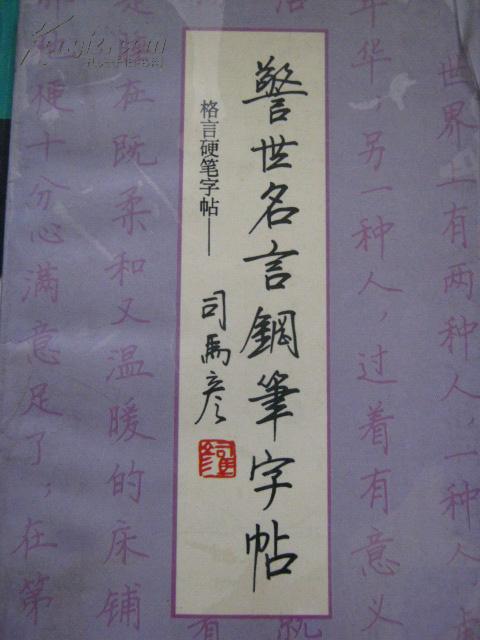 警世名言鋼筆字帖
格言硬笔字帖——
司馬彦
世界上有两种人,一种人,虚
年华;另一种人,过着有意义
是睡在既柔和又温暖的床铺
便十分心满意足了;在第
有
就